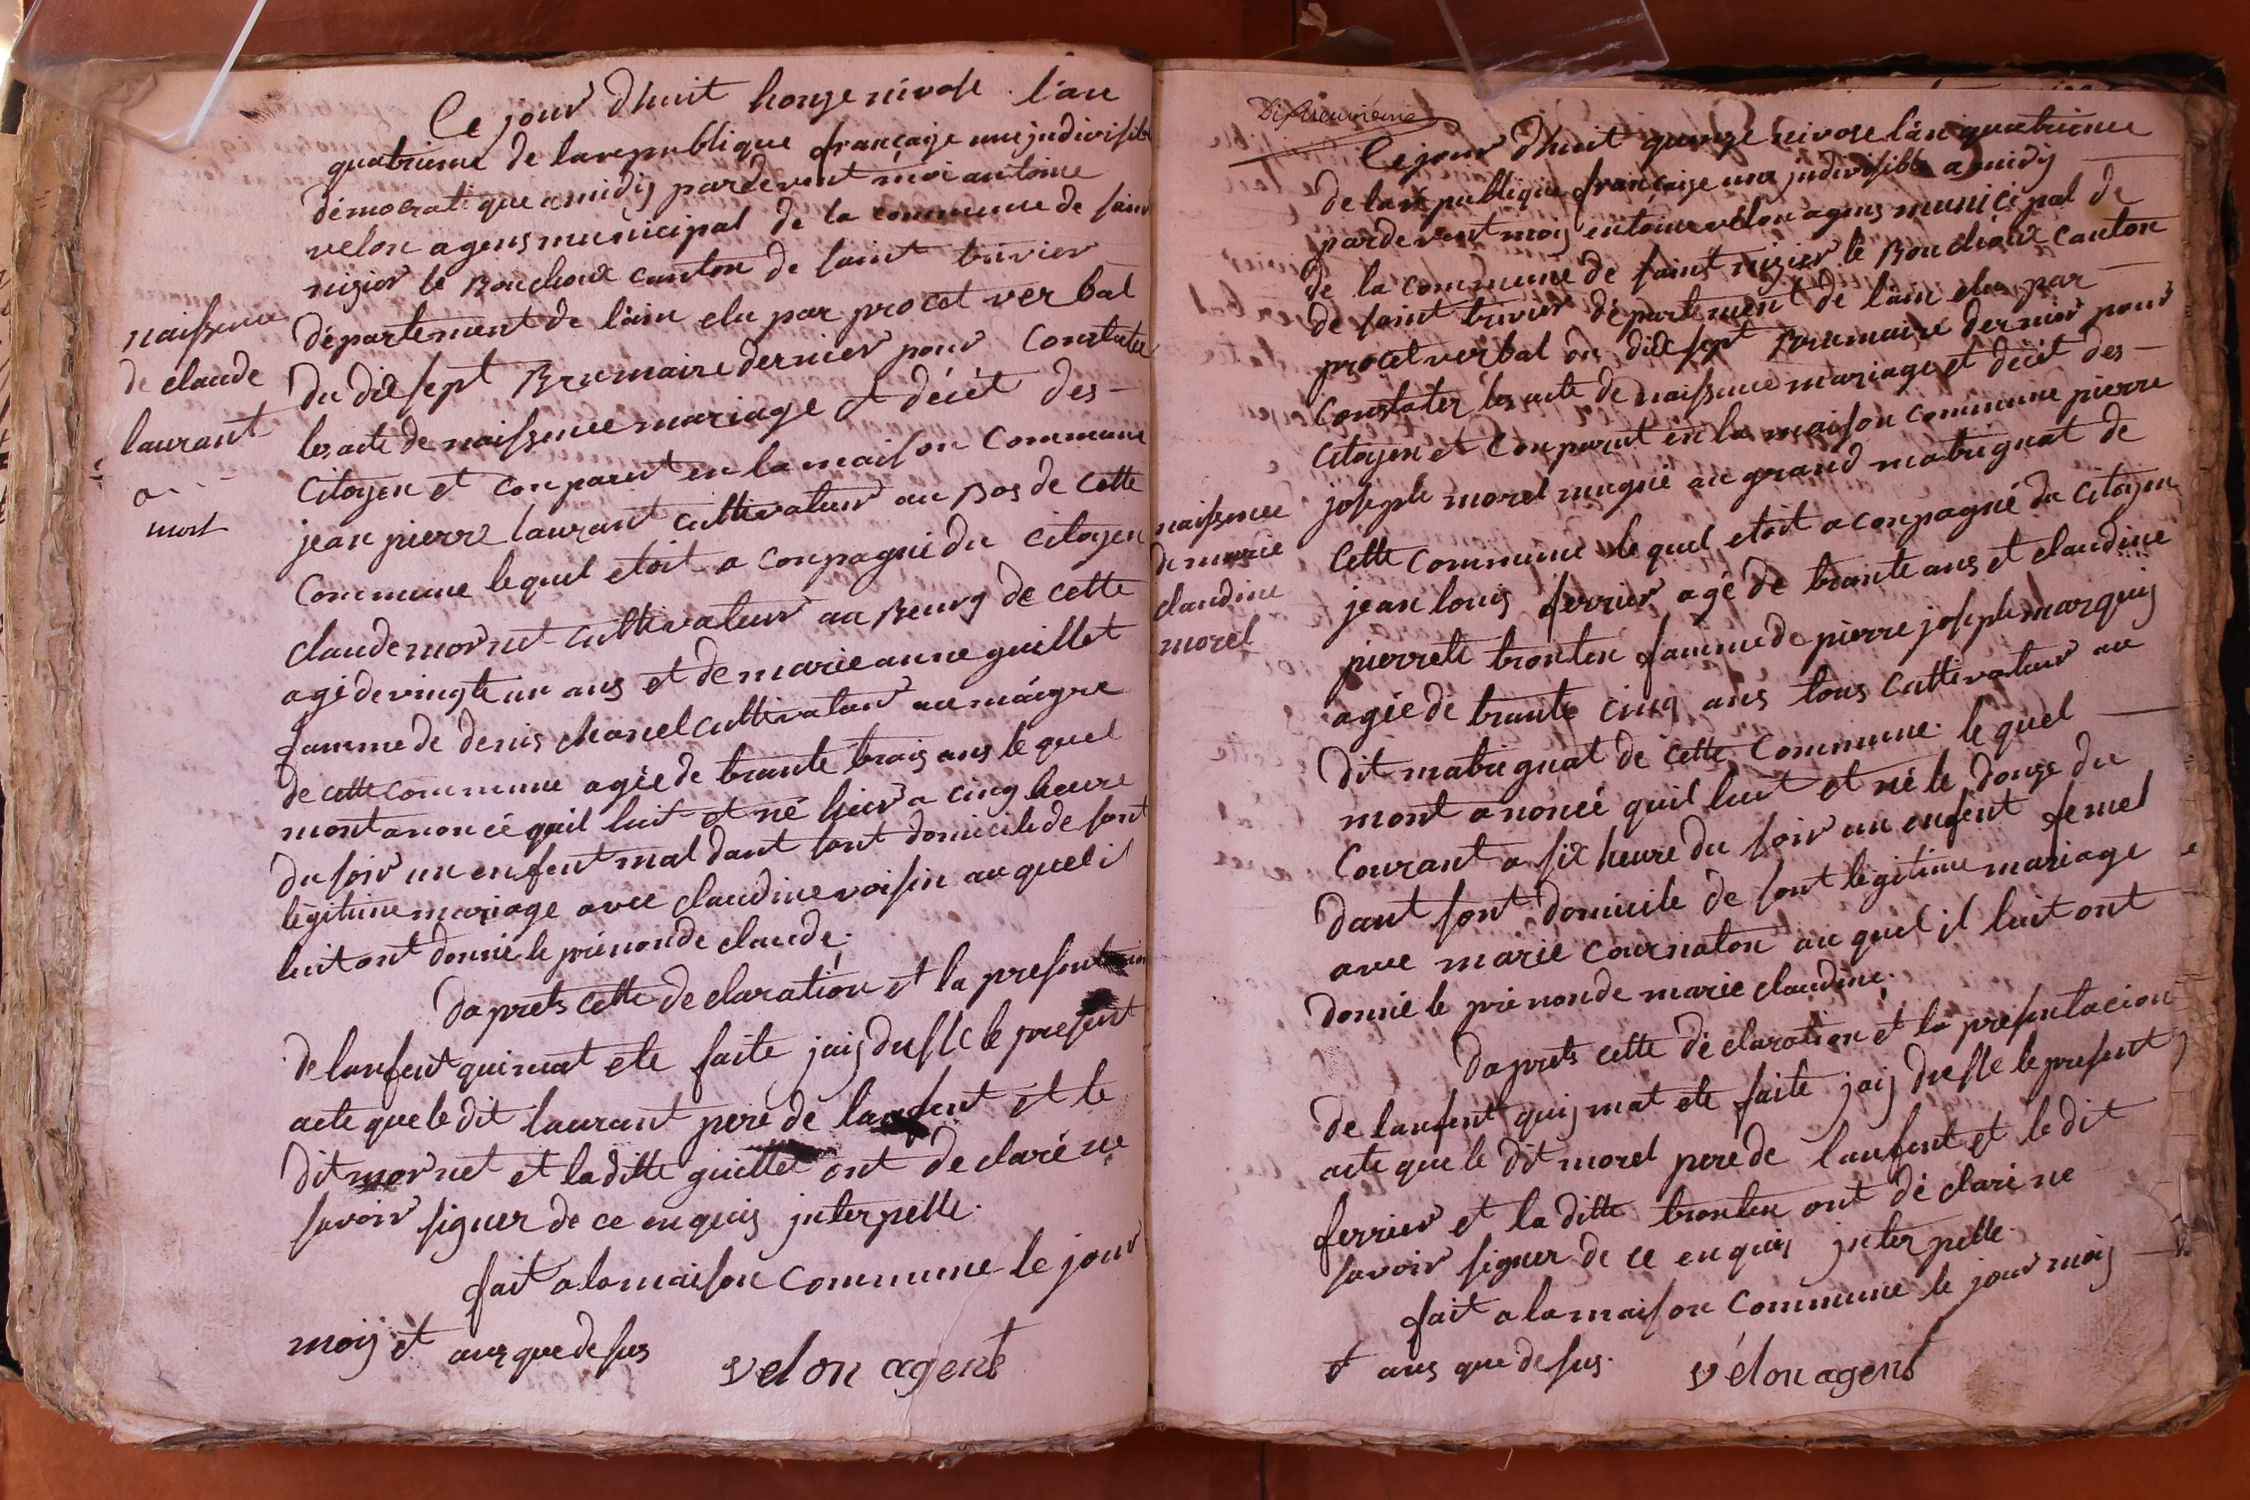 Ce jour dhuit honze nivose l'an
quatrieme de la republique françaize une jndivisible
démocratique a midij pardevent moi antoine
velon agens municipal de la commune de saint
nizier le Bouchoux canton de saint trivier
département de l'ain elu par procet verbal
du dix sept Brumaire dernier pour Constater
les acte de naissence mariage et décét des
Citoyen et Conparut en la maison Commune
jean pierre laurant cultivateur au Bos de cette
Commune lequel etoit a Conpagné du Citoyen
claude mornet cultivateur au Bourg de cette
agé de vingte un ans et de marie anne guillet
famme de denis chanel cultivateur au maigre
de cette commune agée de trante trais ans le quel
mont anoncé quil luit et né hier a cinq heure
du soir un enfent mal dant sont domicile de sont
légitime mariage avec claudine voisin au quel il
luit ont donné le prénon de claude.
da prets cette declaration et la presentacion
de lanfent qui mat ete faite jaij dressé le present
acte que le dit laurant pere de lanfent et le
dit mornet et la ditte guillet ont declaré ne
savoir signer de ce enquis jnterpellé.
fait a la maison Commune le jour
moij et ans que desus
velon agent
naissence
de claude
laurant
a
mort
Ce jour dhuit quinze nivose l'an quatrieme
de la republique françaize une jndivisible a midij
pardevent moij entoine vélon agens municipal de
de la commune de saint nizier le Bouchoux canton
de saint trivier département de l'ain elu par
procet verbal du dix sept Brumaire dernier pour
Constater les acte de naissence mariage et décét des
Citoyen et Conparut en la maison commune pierre
joseph morel mugnié au grand matrignat de
Cette Commune le quel etoit a conpagné du Citoyen
jean louis ferrier agé de trante ans et claudine
pierrete tronten famme de pierre joseph marquis
agée de trante cinq ans tous cultivateur au
dit matrignat de cette Commune. le quel
mont anoncé quil luit et né le donze du
Courant a six heure du soir un enfent femel
dant sont domicile de sont légitime mariage
avec marie cournaton au quel il luit ont
donné le prénon de marie claudine.
da prets cette déclaration et la presentacion
de lanfent quij mat ete faite jaij dressé le present
acte que le dit morel pere de lanfent et le dit
ferrier et la ditte tronten ont déclaré ne
savoir signer de ce enquis jnterpellé
fait a la maison Commune le jour mois
et ans que desus.
vélon agent
naissence
de marie
claudine
morel